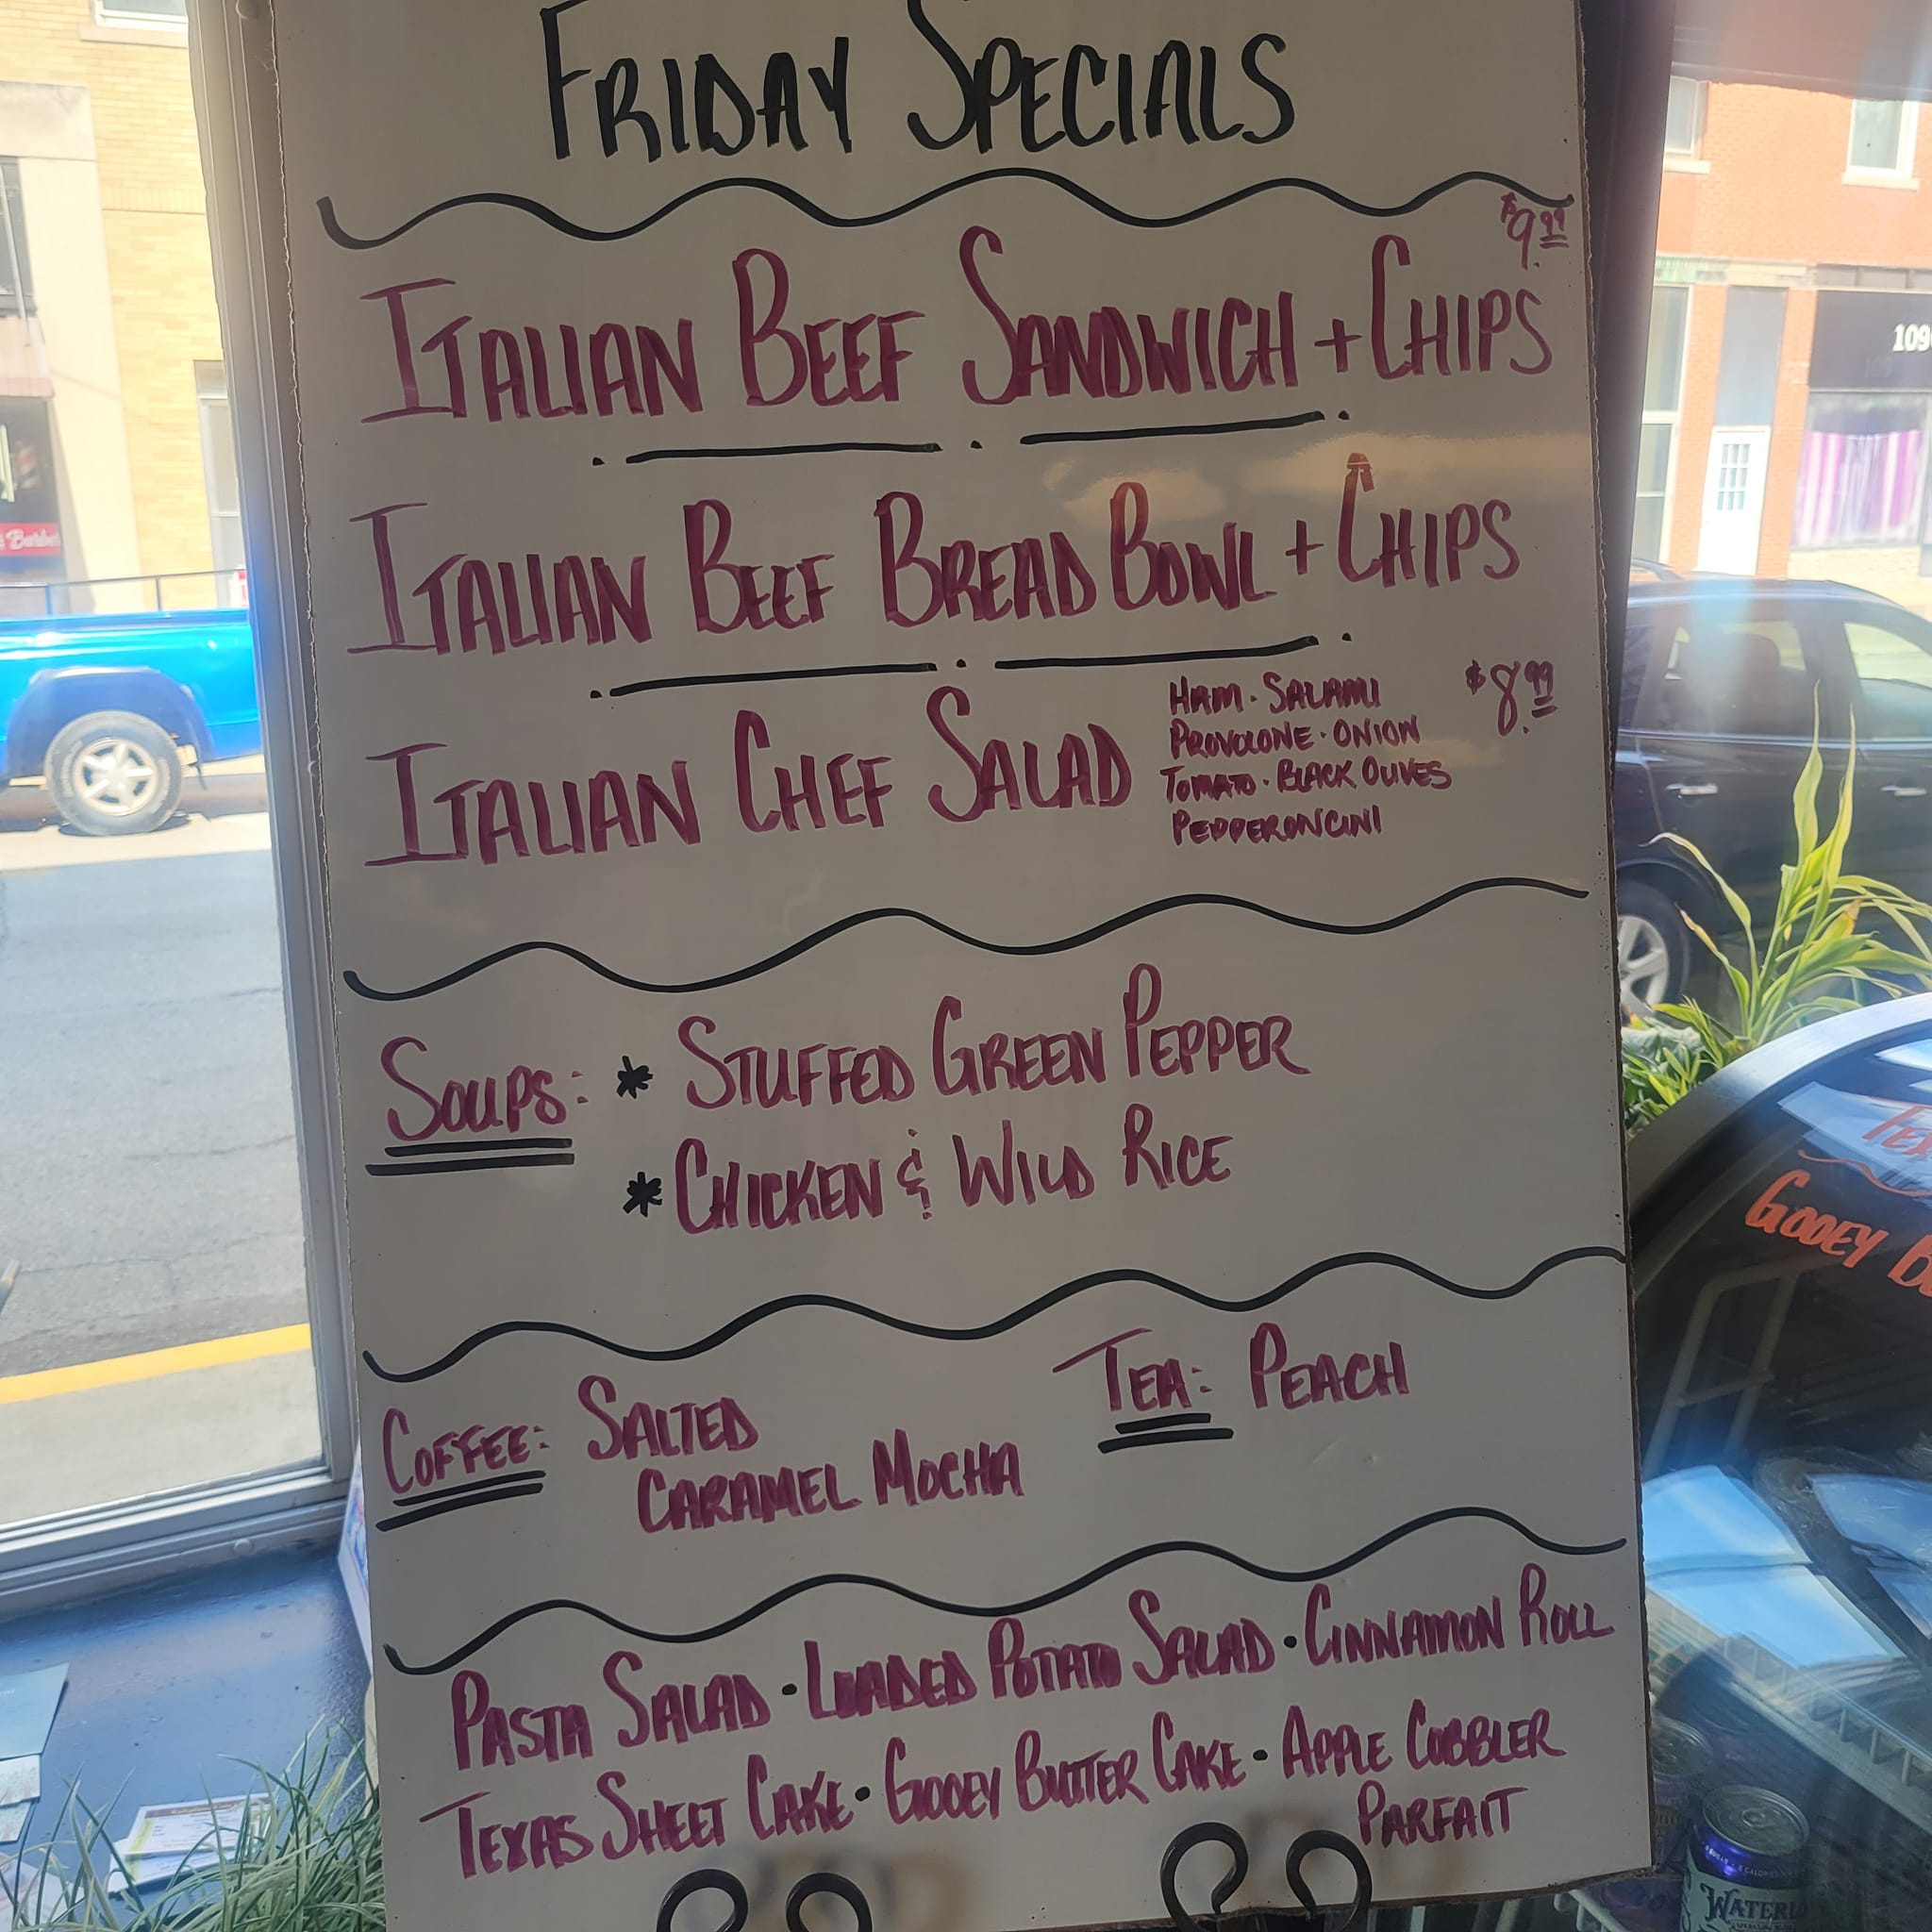 FRIDAY SPECIALS
$9.99
ITALIAN BEEF SANDWICH + CHIPS
ITALIAN BEEF BREAD BOWL + CHIPS
ITALIAN CHEF SALAD
HAM · SALAMI
PROVOLONE · ONION
TOMATO · BLACK OLIVES
PEPPERONCINI
$8.99
SOUPS: * STUFFED GREEN PEPPER
* CHICKEN & WILD RICE
COFFEE: SALTED
CARAMEL MOCHA
TEA: PEACH
PASTA SALAD · LOADED POTATO SALAD · CINNAMON ROLL
TEXAS SHEET CAKE · GOOEY BUTTER CAKE · APPLE COBBLER
PARFAIT
109
GOOEY